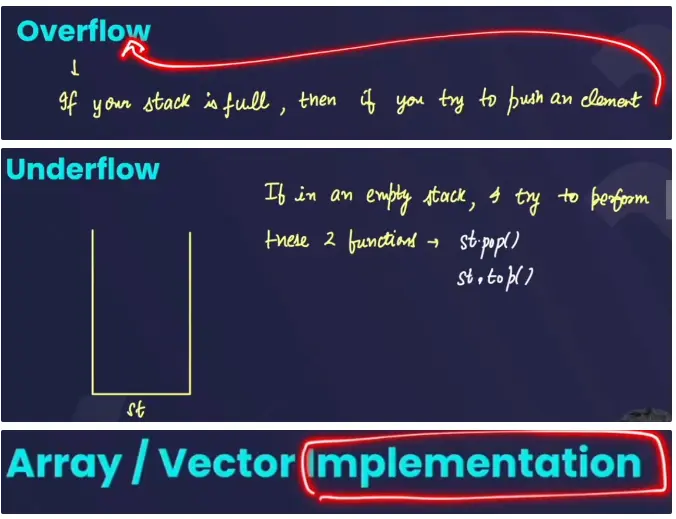 Overflow
If your stack is full, then if you try to push an element
Underflow
If in an empty stack, I try to perform
these 2 functions → st.pop()
st.top()
st
Array / Vector Implementation